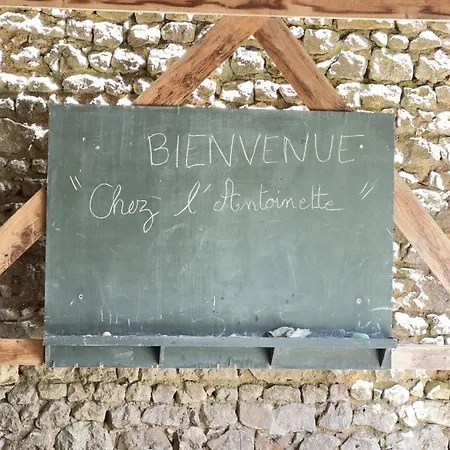 BIENVENUE
" Chez l'Antoinette "